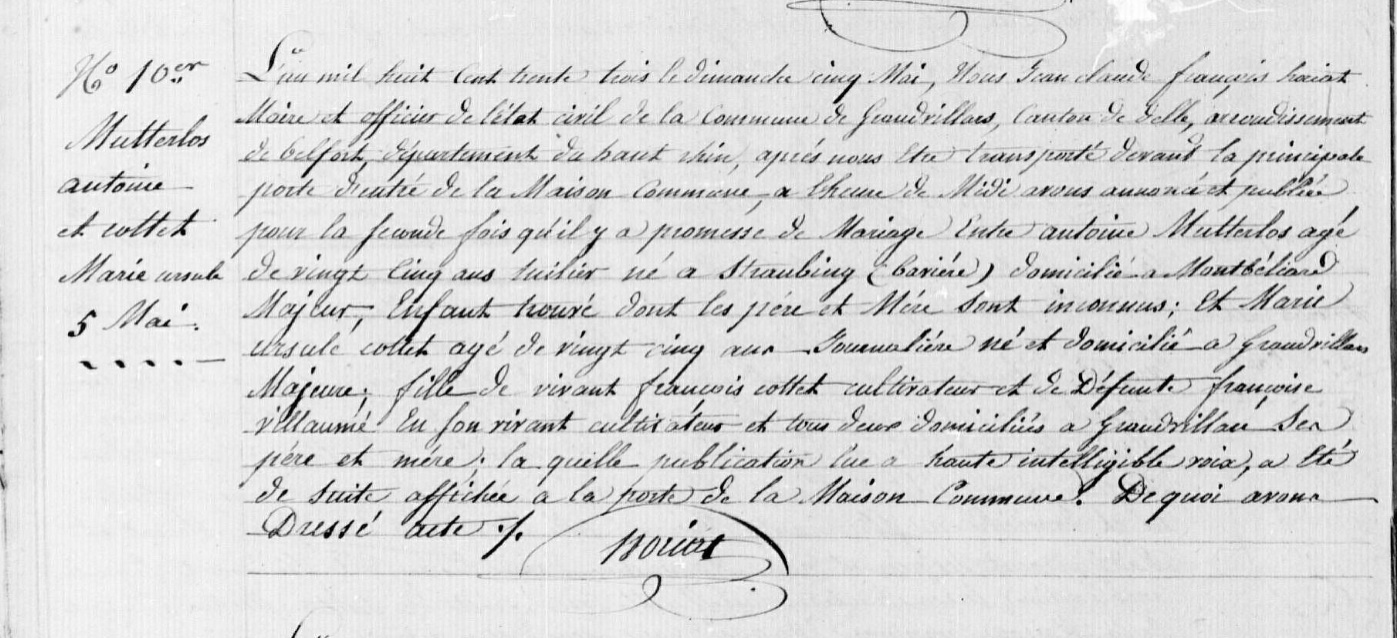 No 10er
Mutterlos
antoine
et cottet
Marie ursule
5 Mai.
L'an mil huit Cent trente trois le dimanche cinq Mai, Nous Jean claude françois
Maire et officier de l'état civil de la Commune de Grandvillars, Canton de Delle, arrondissement
de belfort, département du haut rhin, aprés nous Etre transporté devant la principale
porte d'entré de la Maison Commune, a l'heure de Midi avons annoncé et publiée
pour la seconde fois qu'il y a promesse de Mariage Entre antoine Mutterlos agé
de vingt Cinq ans tuilier né a Straubing (baviére) domicilié a Montbéliard
Majeur, Enfant trouvé dont les pére et Mére sont inconnus; Et Marie
ursule cottet agé de vingt cinq ans Journaliére né et domicilié a Grandvillars
Majeure; fille de vivant françois cottet cultivateur et de Défunte françoise
villaumé En son vivant cultivateur et tous deux domiciliés a Grandvillars Ses
pére et mére; la quelle publication lue a haute intelligible voix, a Eté
de suite affichée a la porte de la Maison Commune. De quoi avons
Dressé acte ./.